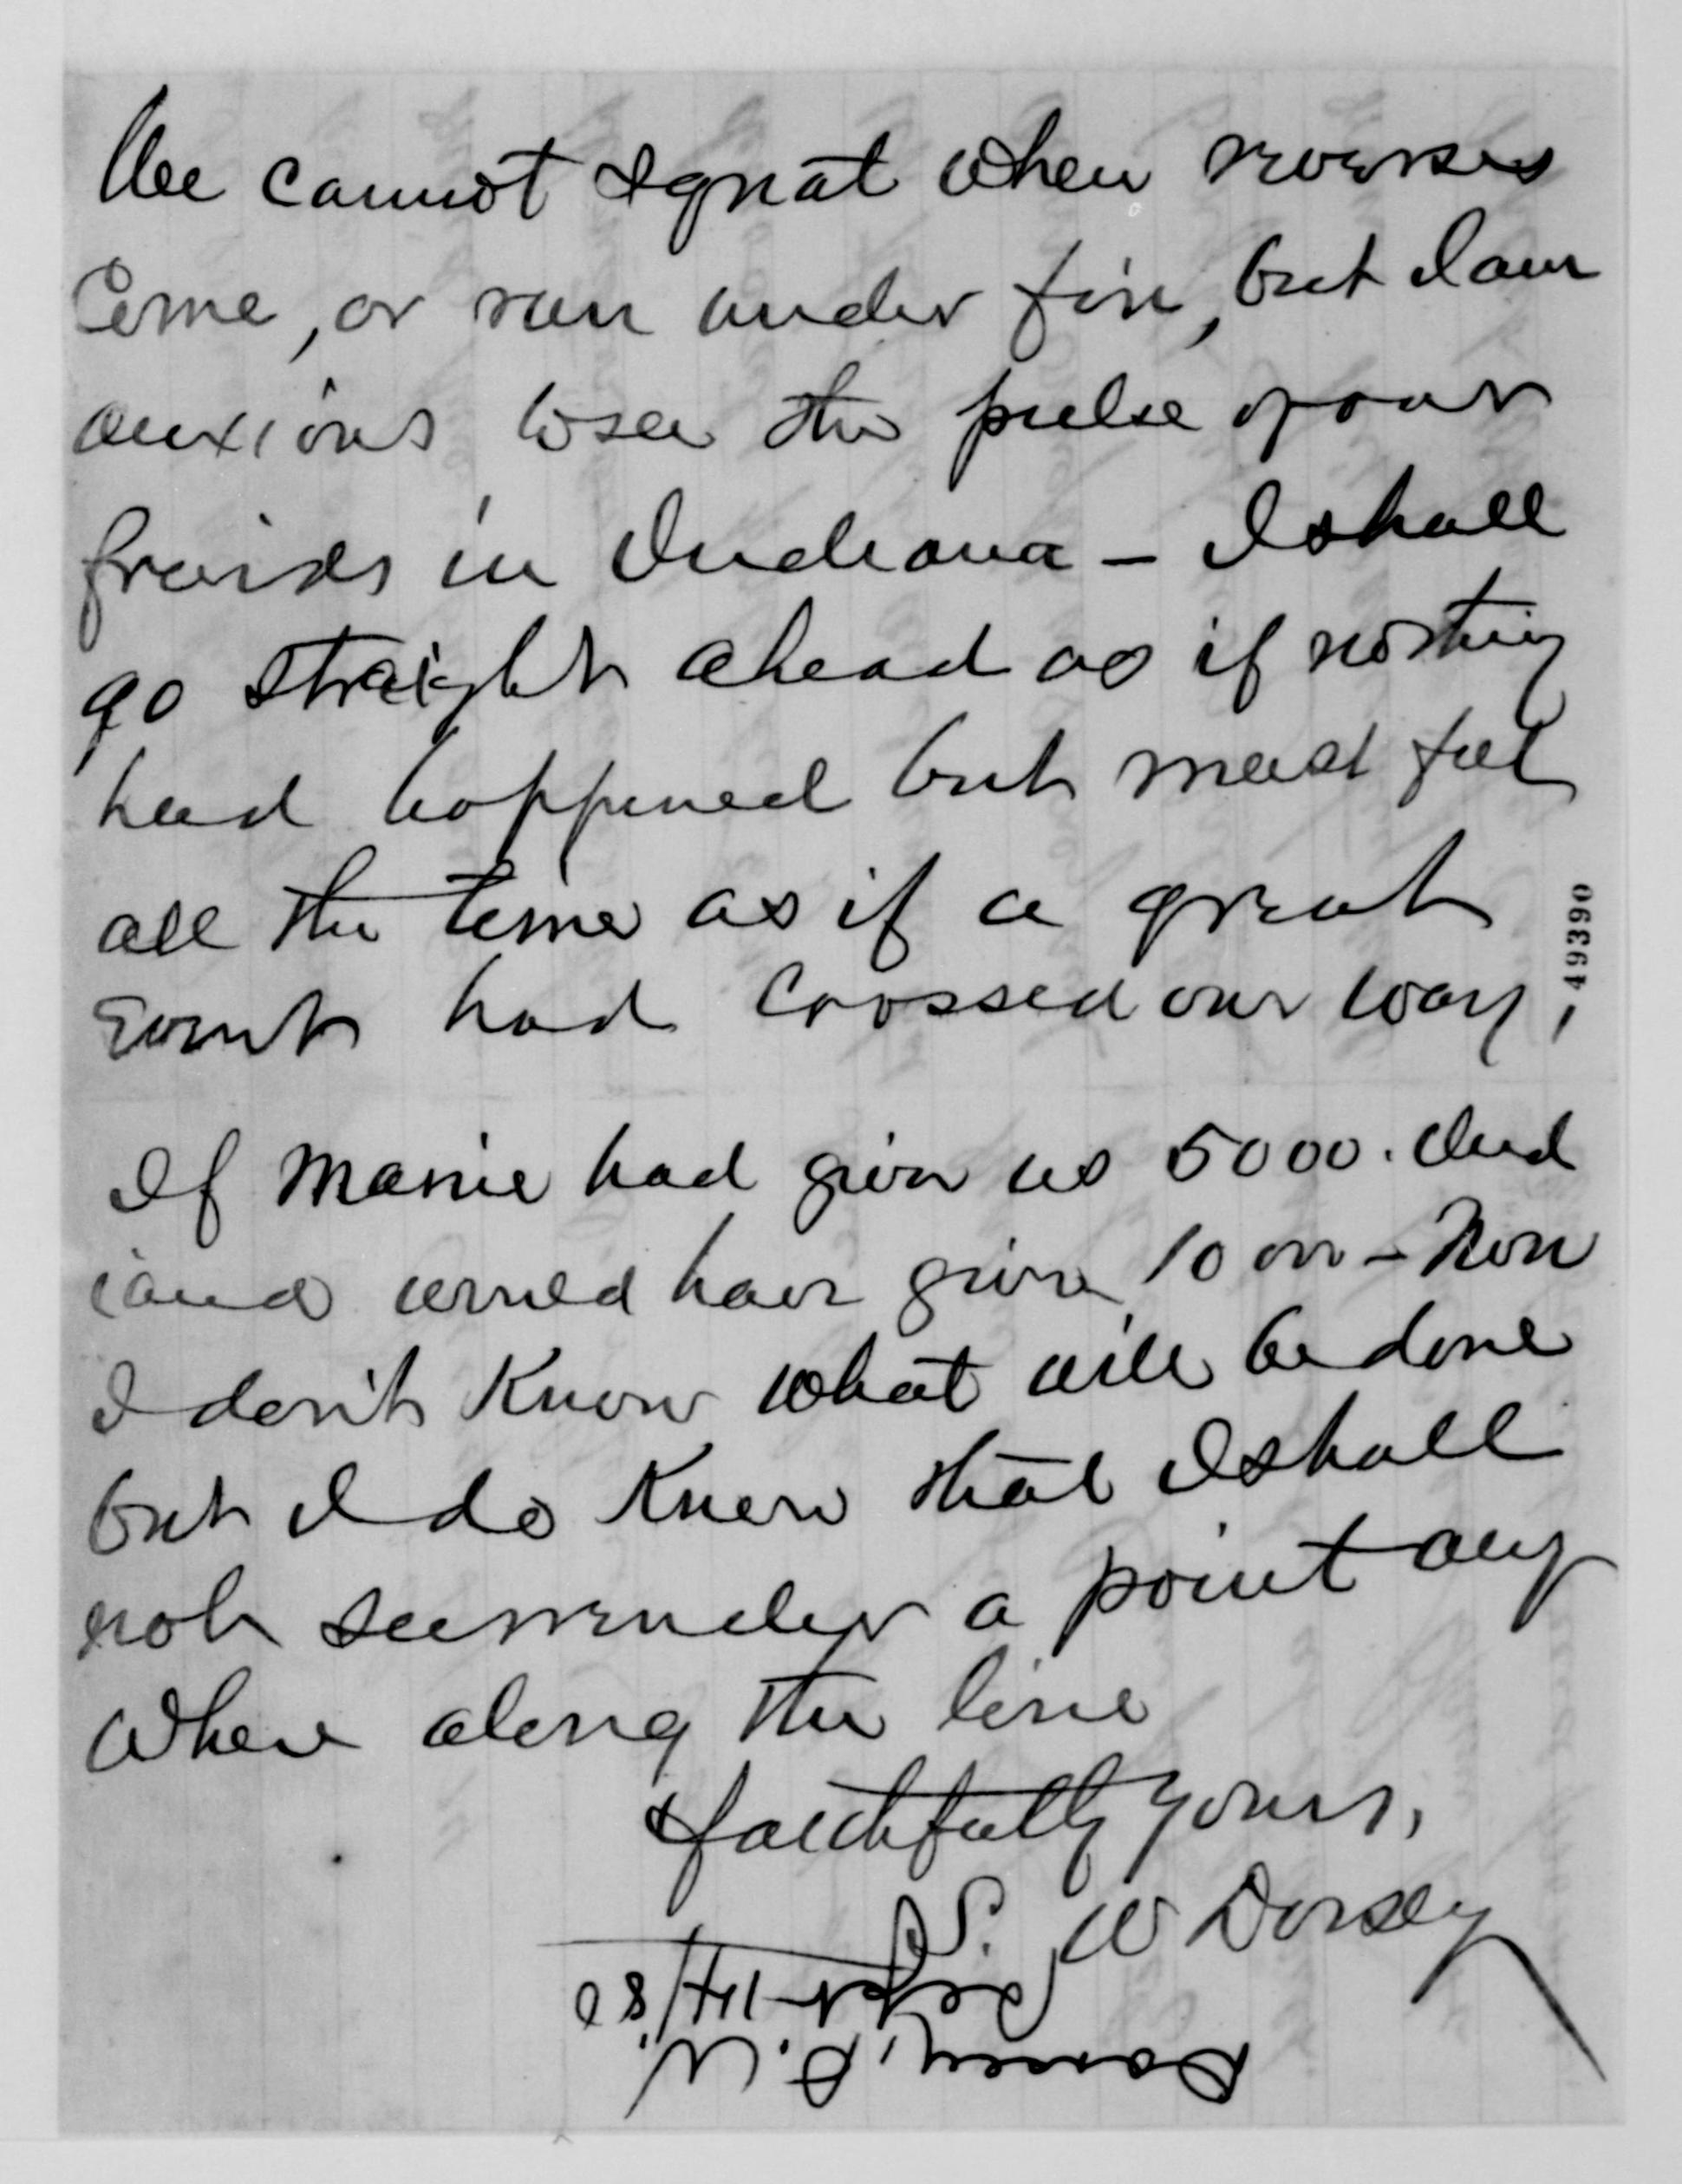 We cannot squat when reverses
Come, or run under fire, but I am
anxious to see the pulse of our
friends in Indiana – I shall
go straight ahead as if nothing
had happened but must feel
all the time as if a great
Event had crossed our way,
49390
If Maine had given us 5000. Ind
iana would have given 10 000 – Now
I don't Know what will be done
but I do Know that I shall
not surrender a point any
where along the line
faithfully yours,
S. W Dorsey
Dorsey, S. W.
Sept 14/80